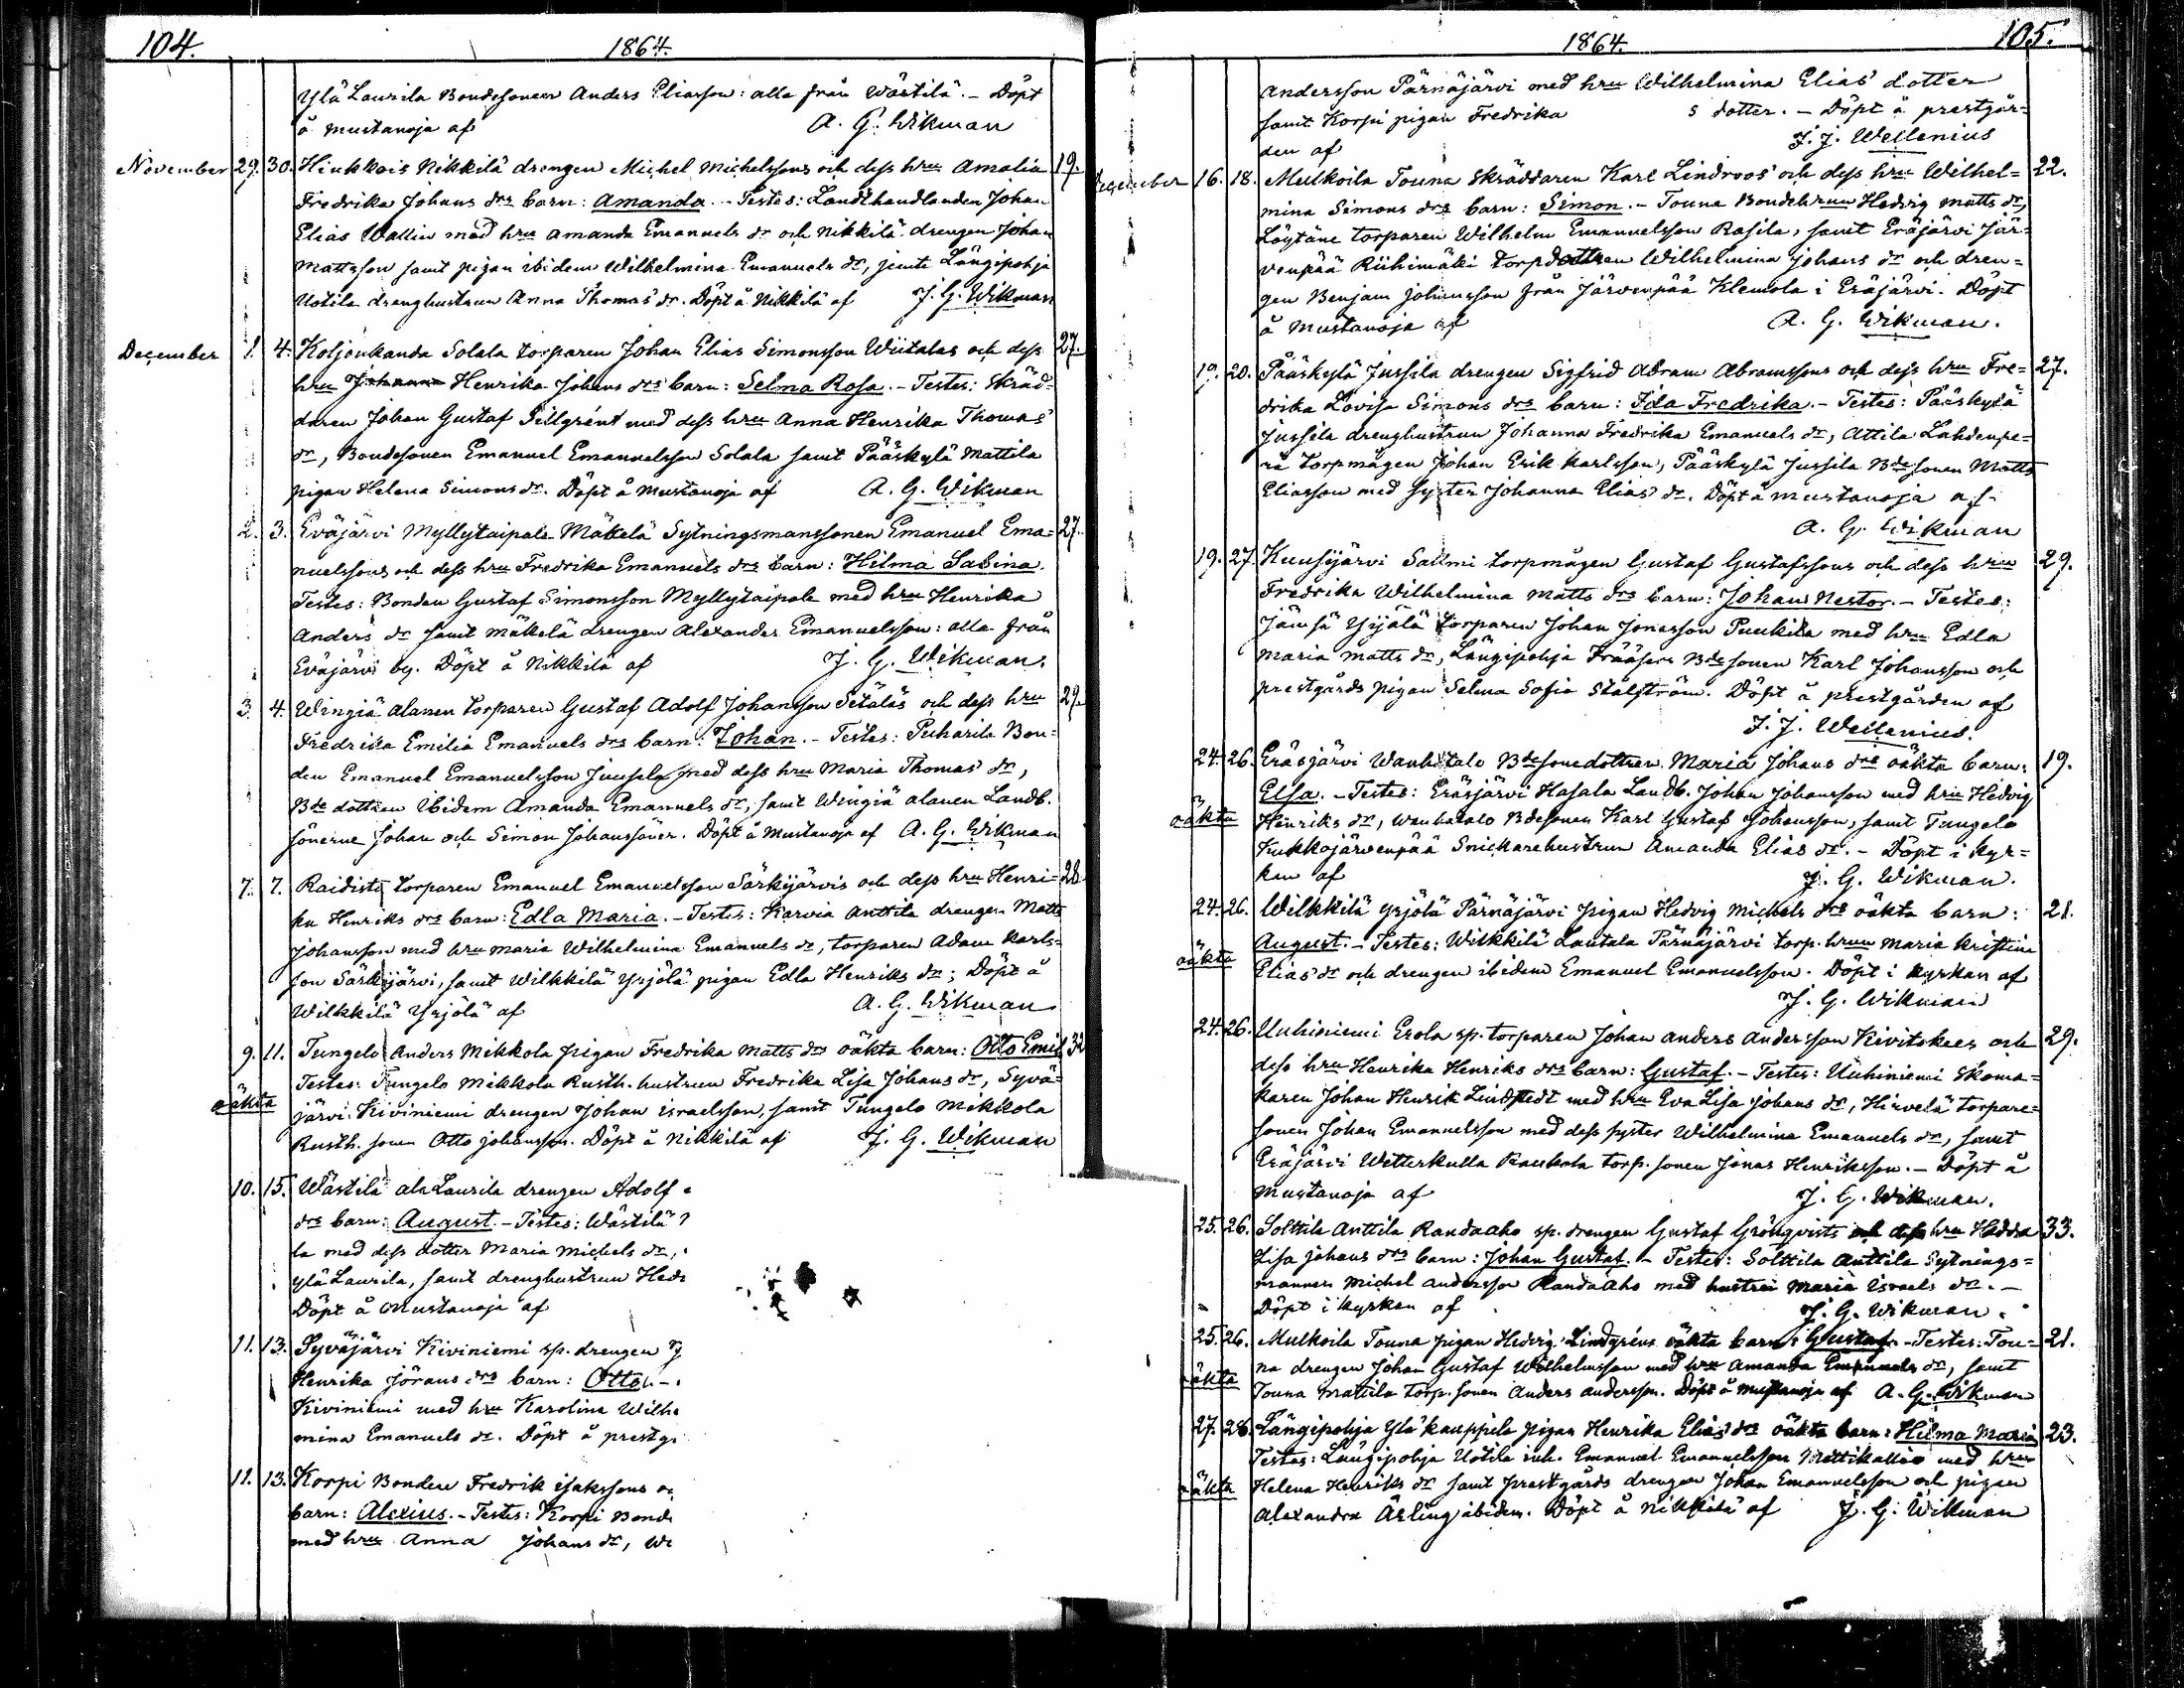 104.
1864.
Ylä Laurila Bondesonen Anders Eliasson: alla från Wästilä. - Döpt
å Mustanoja af A. G. Wikman
November 29. 30. Hinkkois Nikkilä drengen Michel Michelssons och dess hru Amalia 19.
Fredrika Johans drs barn: Amanda. - Testes: Landthandlanden Johan
Elias Wallin med hru Amanda Emanuels dr och Nikkilä drengen Johan
Mattsson samt pigan ibidem Wilhelmina Emanuels dr, jemte Längipohja
Uotila drenghustrun Anna Thomas dr. Döpt å Nikkilä af J. G. Wikman
December 1. 4. Koljonkanda Solala torparen Johan Elias Simonsson Wiitalas och dess 27.
hru Johanna Henrika Johans drs barn: Selma Rosa. - Testes: Skräd-
daren Johan Gustaf Pillgrént med dess hru Anna Henrika Thomas
dr, Bondesonen Emanuel Emanuelsson Solala samt Pääskylä Mattila
pigan Helena Simons dr. Döpt å Mustanoja af A. G. Wikman
2. 3. Eväjärvi Myllytaipale Mäkelä Sytningsmanssonen Emanuel Ema= 27.
nuelssons och dess hru Fredrika Emanuels drs barn: Hilma Sabina.
Testes: Bonden Gustaf Simonsson Myllytaipale med hru Henrika
Anders dr samt Mäkelä drengen Alexander Emanuelsson: alla från
Eväjärvi by. Döpt å Nikkilä af J. G. Wikman.
3. 4. Wingiä alanen torparen Gustaf Adolf Johansson Setäläs och dess hru 29.
Fredrika Emilia Emanuels drs barn: Johan. - Testes: Puharila Bon=
den Emanuel Emanuelsson Juusela med dess hru Maria Thomas dr,
Bde dottren ibidem Amanda Emanuels dr, samt Wingiä alanen Landb.
sönerne Johan och Simon Johanssöner. Döpt å Mustanoja af A. G. Wikman
7. 7. Raidisto torparen Emanuel Emanuelsson Särkijärvis och dess hru Henri= 28.
ka Henriks drs barn: Edla Maria. - Testes: Karvia Anttila drengen Matts
Johansson med hru Maria Wilhelmina Emanuels dr, torparen Adam Karls-
son Särkijärvi, samt Wilkkilä Yrjölä pigan Edla Henriks dr; Döpt å
Wilkkilä Yrjölä af A. G. Wikman
9. 11. Tungelo Anders Mikkola pigan Fredrika Matts drs oäkta barn: Otto Emil 32
Testes: Tungelo Mikkola Rusth. hustrun Fredrika Lisa Johans dr, Syvä-
oäkta järvi Kiviniemi drengen Johan Israelsson, samt Tungelo Mikkola
Rusth. sonen Otto Johansson. Döpt å Nikkilä af J. G. Wikman
10. 15. Wästilä ala Laurila drengen Adolf
drs barn: August. - Testes: Wästilä
la med dess dotter Maria Michels dr,
ylä Laurila, samt drenghustrun Hed
Döpt å Mustanoja af
11. 13. Syväjärvi Kiviniemi sp. drengen J
Henrika Jörans drs barn: Otto. -
Kiviniemi med hru Karolina Wilh
mina Emanuels dr. Döpt å prestg
11. 13. Korpi Bonden Fredrik Isakssons o
barn: Alexius. - Testes: Korpi Bond
med hru Anna Johans dr, W
1864.
105.
Andersson Pärnäjärvi med hru Wilhelmina Elias dotter
samt Korpi pigan Fredrika s dotter. - Döpt å prestgår-
den af J. J. Wellenius
December 16. 18. Mulkoila Touna Skräddaren Karl Lindroos och dess hru Wilhel= 22.
mina Simons drs barn: Simon. - Touna Bondehrun Hedvig Matts dr,
Löytäne torparen Wilhelm Emanuelsson Rasila, samt Eräjärvi Jär-
venpää Riihimäki torpdottren Wilhelmina Johans dr och dren=
gen Benjam Johansson från Järvenpää Klemola i Eräjärvi. Döpt
å Mustanoja af A. G. Wikman.
19. 20. Pääskylä Jussila drengen Sigfrid Abram Abramssons och dess hru Fre= 27.
drika Lovisa Simons drs barn: Ida Fredrika. - Testes: Pääskylä
Jussila drenghustrun Johanna Fredrika Emanuels dr, Attila Lahdenpe-
rä torpmågen Johan Erik Karlsson, Pääskylä Jussila Bde sonen Matts
Eliasson med syster Johanna Elias dr. Döpt å Mustanoja af
A. G. Wikman
19. 27. Kuusijärvi Salmi torpmågen Gustaf Gustafssons och dess hru 29.
Fredrika Wilhelmina Matts drs barn: Johan Nestor. - Testes:
Jämsä Yijälä torparen Johan Jonasson Puukila med hru Edla
Maria Matts dr, Längipohja Frääsari Bde sonen Karl Johansson och
prestgårds pigan Selma Sofia Stålström. Döpt å prestgården af
J. J. Wellenius.
24. 26. Eräsjärvi Wanhatalo Bdesonedottren Maria Johans drs oäkta barn: 19.
Elsa. - Testes: Eräsjärvi Hasala Landb. Johan Johansson med hru Hedvig
oäkta Henriks dr, Wanhatalo Bdesonen Karl Gustaf Johansson, samt Tungelo
Kukkojärvenpää Snickarehustrun Amanda Elias dr. - Döpt i kyr=
kan af J. G. Wikman.
24. 26. Wilkkilä Yrjölä Pärnäjärvi pigan Hedvig Michels drs oäkta barn: 21.
oäkta August. - Testes: Wilkkilä Lautala Pärnäjärvi torp. hrun Maria Kristina
Elias dr och drengen ibidem Emanuel Emanuelsson. Döpt i kyrkan af
J. G. Wikman
24. 26. Unhiniemi Erola sp. torparen Johan Anders Andersson Kivitokees och 29.
dess hru Henrika Henriks drs barn: Gustaf. - Testes: Unhiniemi Skoma-
karen Johan Henrik Lindstedt med hru Eva Lisa Johans dr, Hirvelä torpare=
sonen Johan Emanuelsson med dess syster Wilhelmina Emanuels dr, samt
Eräjärvi Wetterkulla Raukola torp. sonen Jonas Henriksson. - Döpt å
Mustanoja af J. G. Wikman.
25. 26. Solttila Anttila Randaaho sp. drengen Gustaf Grönqvists och dess hru Hedda 33.
Lisa Johans drs barn: Johan Gustaf. - Testes: Solttila Anttila Sytnings=
mannen Michel Andersson Randaaho med hustrun Maria Israels dr. -
Döpt i kyrkan af J. G. Wikman.
25. 26. Mulkoila Touna pigan Hedvig Lindgréns oäkta barn: Gustaf. - Testes: Tou= 21.
oäkta na drengen Johan Gustaf Wilhelmsson med hru Amanda Emanuels dr, samt
Touna Mattila torp. sonen Anders Andersson. Döpt å Mustanoja af A. G. Wikman
27. 28. Längipohja Ylä Kauppila pigan Henrika Elias drs oäkta barn: Hilma Maria 23.
Testes: Längipohja Uotila inh. Emanuel Emanuelsson med hru
oäkta Helena Henriks dr samt prestgårds drengen Johan Emanuelsson och pigan
Alexandra Ärling ibidem. Döpt å Nikkilä af J. G. Wikman